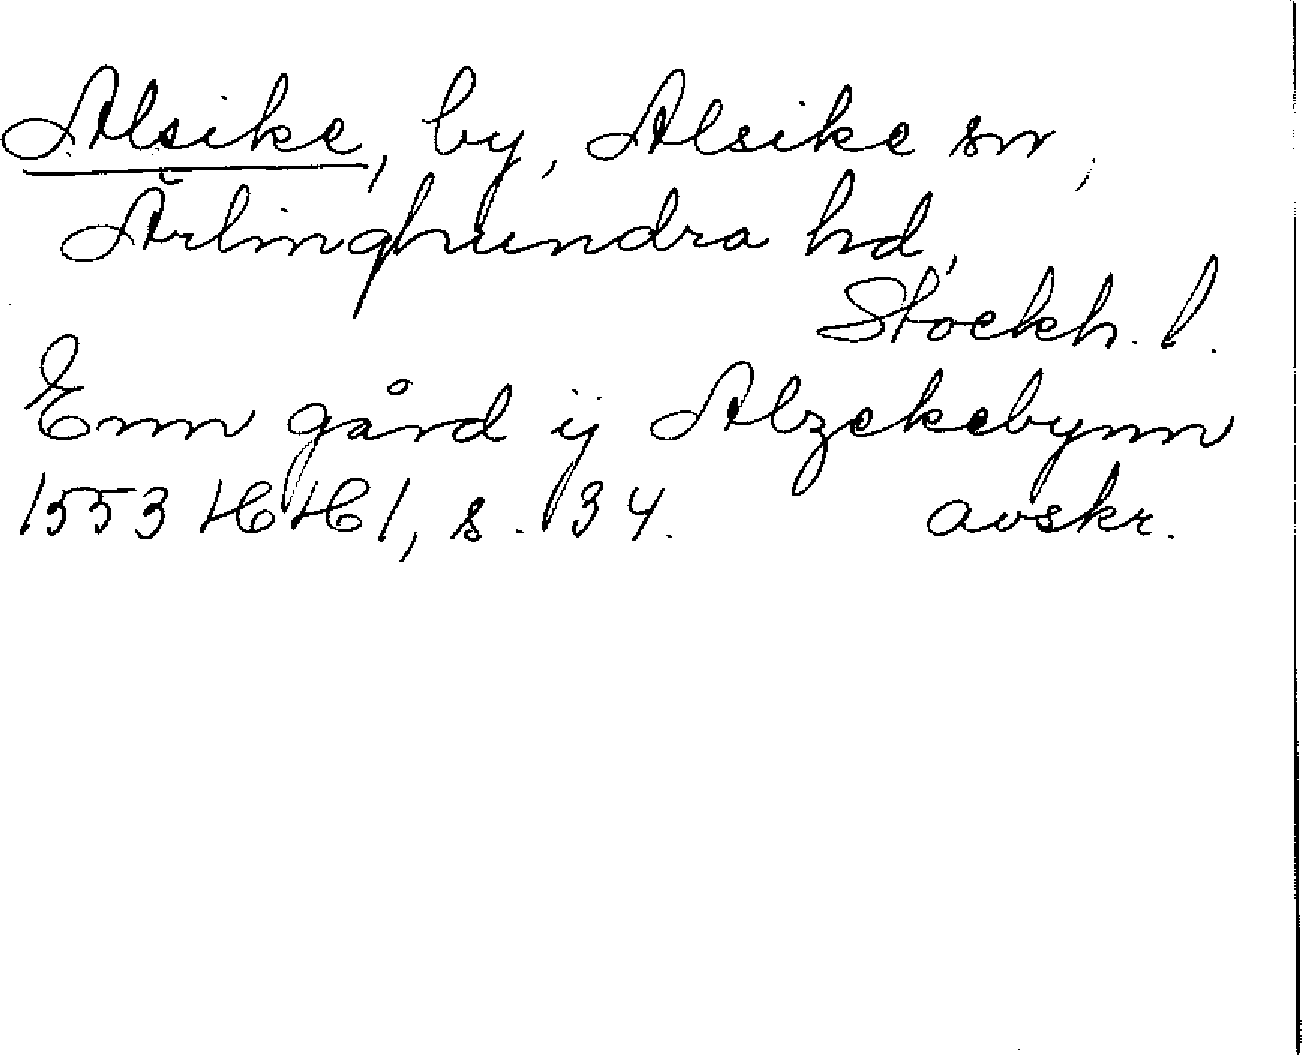 Alsike, by, Alsike sn,
Ärlinghundra hd,
Stockh. l.
Enn gård ij Alzekebynn
1553 HH 1, s. 134. avskr.